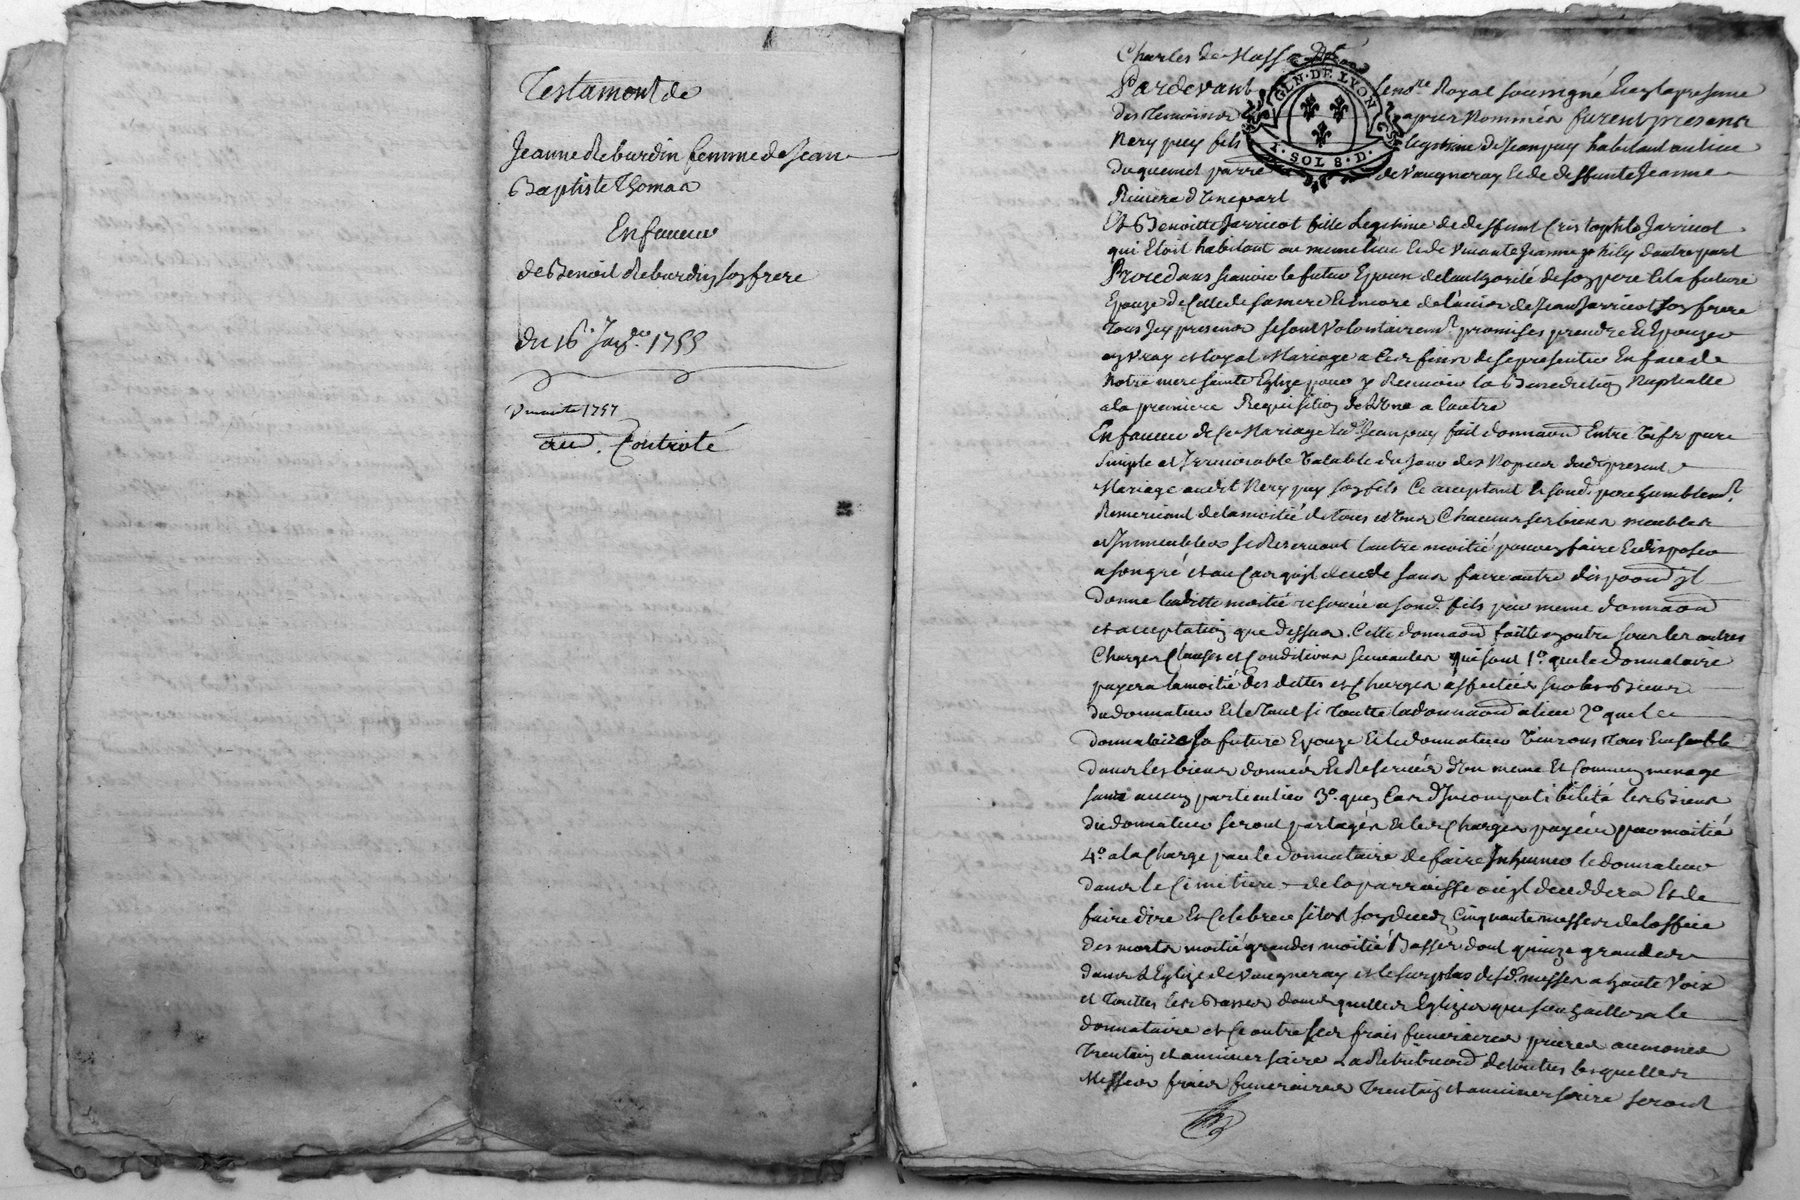 Testament de
Jeanne Reburdin femme de Jean
Baptiste Thomas
En faveur
de Benoit Reburdin son frere
du 16e Janr. 1755
1757
Controlé
Charles de Masse
GEN. DE LYON
1. SOL 8. D.
Pardevant le no.re Royal soussigné Et en la presence
des temoins apres Nommés furent presens
Nery puy fils legitime de Jean puy habitant au lieu
du quemet parre de Vaugneray et de deffunte Jeanne
Riviere d'une part
Et Benoitte Jarricot fille Legitime de deffunt Cristophle Jarricot
qui Etoit habitant au meme lieu et de vivante Jeanne d'autre part
Procedans scavoir le futur Epoux de l'authorité de son pere et la future
Epouze de Celle de sa mere et Encore de l'avis de Jean Jarricot son frere
tous Icy presens se sont volontairemt. promis se prendre Et Epouzer
en vray et loyal Mariage a Ces fins de se presenter En face de
Notre mere sainte Eglize pour y Recevoir la Benediction Nuptialle
a la premiere Requisition de L'une a l'autre
En faveur de Ce Mariage led. Jean puy fait donnaon Entre vifs pure
Simple et Irrevocable valable du jour des Nopces dudit present
Mariage audit Nery puy son fils Ce aceptant et sond. pere humblemt.
Remerciant de la moitié de tous et uns Chacuns ses biens meubles
et Immeubles se Reservant l'autre moitié pour en faire et disposer
a son gré et au Cas qu'il decede sans faire autre dispoon il
donne laditte moitié reservée a sond. fils par meme donnaon
et acceptation que dessus. Cette donnaon faitte en outre sous les autres
Charges Clauses et Conditions suivantes qui sont 1o. que le donnataire
payera la moitié des dettes et Charges affectées sur les Biens
du donnateur Et le tout si toutte la donnaon a lieu 2o que le
donnataire sa future Epouze Et le donnateur vivront tous Ensemble
dans les biens donnés et Reservés d'un meme Et Commun menage
sans aucun particulier 3o. qu'en Cas d'Incompatibilité les Biens
du donnateur seront partagés et les Charges payées par moitié
4o. a la Charge par le donnataire de faire Inhumer le donnateur
dans le Cimetiere de la parroisse ou il decedera Et de
faire dire Et Celebrer sitot son decez Cinquante messes de l'office
des morts moitié grandes moitié Basses dont quinze grandes
dans l'Eglize de Vaugneray et le surplus desd. messes a haute Voix
et touttes les Basses dans quelles Eglizes que souhaittera le
donnataire et Ce outre ses frais funeraires prieres aumones
trentain et anniversaire La Retribuon de touttes lesquelles
Messes frais funeraires trentain et anniversaire seront